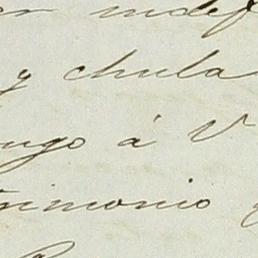 indef
y chula
ngo á V
rimonio